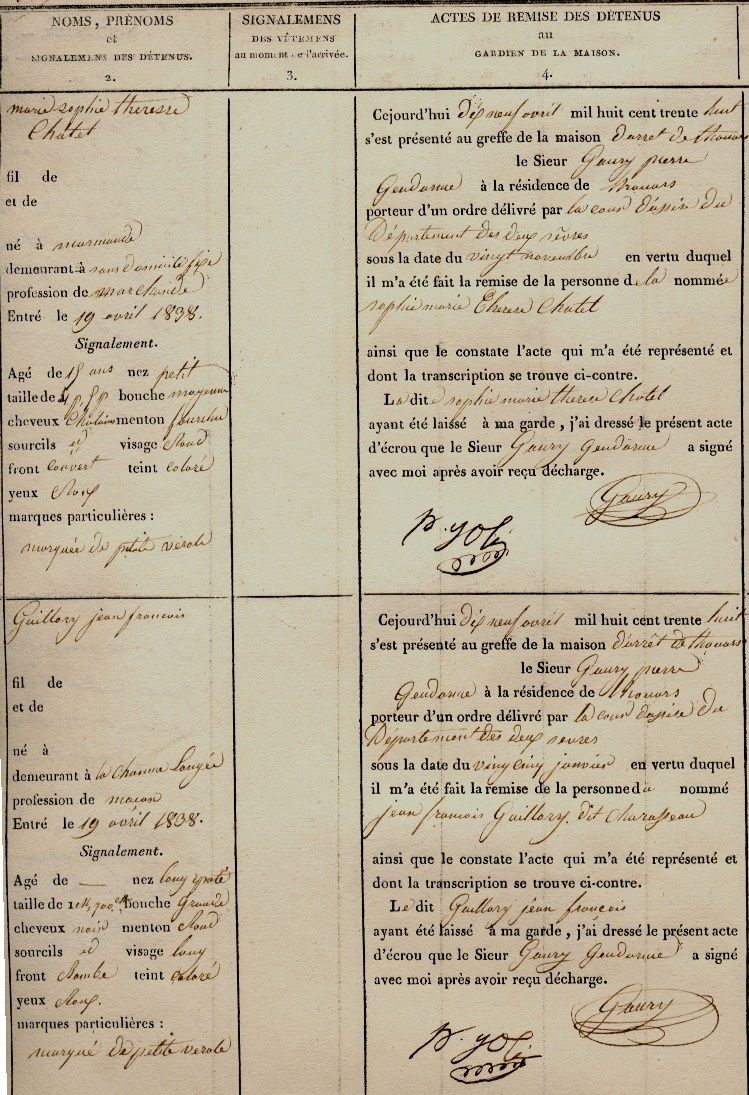 NOMS, PRÉNOMS
et
SIGNALEMENS DES DÉTENUS.
2.
SIGNALEMENS
DES VÊTEMENS
au moment de l'arrivée.
3.
ACTES DE REMISE DES DÉTENUS
au
GARDIEN DE LA MAISON.
4.
marie sophie theresse
Chatet
fil de
et de
né à marmande
demeurant à sans domicile fixe
profession de marchande
Entré le 19 avril 1838.
Signalement.
Agé de 15 ans nez petit
taille de 4 p. 5 p bouche moyenne
cheveux Chatain menton fourchu
sourcils id visage Rond
front couvert teint coloré
yeux Roux
marques particulières :
marquée de petite vérole
Cejourd'hui dix neuf avril mil huit cent trente huit
s'est présenté au greffe de la maison d'arret de thouars
le Sieur Gaury pierre
Gendarme à la résidence de thouars
porteur d'un ordre délivré par la cour d'assise du
Département des deux sèvres
sous la date du vingt novembre en vertu duquel
il m'a été fait la remise de la personne de la nommée
sophie marie Therese Chatet
ainsi que le constate l'acte qui m'a été représenté et
dont la transcription se trouve ci-contre.
La dite sophie marie therese Chatet
ayant été laissé à ma garde, j'ai dressé le présent acte
d'écrou que le Sieur Gaury Gendarme a signé
avec moi après avoir reçu décharge.
Gaury
Guillory jean francois
fil de
et de
né à
demeurant à la chauma
profession de macon
Entré le 19 avril 1838.
Signalement.
Agé de — nez long épaté
taille de 1 M, 700 bouche Grande
cheveux noir menton Rond
sourcils id visage long
front teint coloré
yeux Roux.
marques particulières :
marqué de petite verole
Cejourd'hui dix neuf avril mil huit cent trente huit
s'est présenté au greffe de la maison d'arrêt de thouars
le Sieur Gaury pierre
Gendarme à la résidence de thouars
porteur d'un ordre délivré par la cour d'assise du
Département des deux sevres
sous la date du vingt cinq janvier en vertu duquel
il m'a été fait la remise de la personne du nommé
jean francois Guillory dit charasseau
ainsi que le constate l'acte qui m'a été représenté et
dont la transcription se trouve ci-contre.
Le dit Guillory jean françois
ayant été laissé à ma garde, j'ai dressé le présent acte
d'écrou que le Sieur Gaury Gendarme a signé
avec moi après avoir reçu décharge.
Gaury